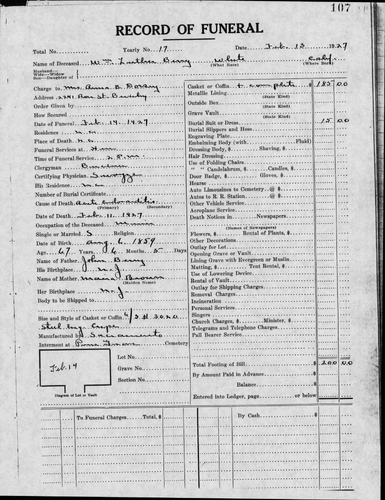 107
RECORD OF FUNERAL
Total No. Yearly No. 17 Date Feb. 13 1927
Name of Deceased Wm Luther Berry White Calif.
(What Race) (Where Born)
Husband
Wife—Widow
Son—Daughter of
Charge to Mrs. Anna B. Dorsey
Address
Order Given by
How Secured
Date of Funeral Feb. 14, 1927.
Residence
Place of Death
Funeral Services at
Time of Funeral Service 2 P.m.
Clergyman
Certifying Physician
His Residence
Number of Burial Certificate
Cause of Death
Date of Death Feb. 11, 1927
Occupation of the Deceased
Single or Married S Religion
Date of Birth Aug. 6, 1859
Age 67 Years 6 Months 5 Days
Name of Father John Berry
His Birthplace N.J.
Name of Mother Brown
(Maiden Name)
Her Birthplace N.J
Body to be Shipped to
Size and Style of Casket or Coffin
Manufactured by Sacramento
Interment at Cemetery
Feb. 14
Lot No.
Grave No.
Section No.
Diagram of Lot or Vault
Casket or Coffin & complete $ 185 00
Metallic Lining
(State Kind)
Outside Box
(State Kind)
Grave Vault
(State Kind)
Burial Suit or Dress 15 00
Burial Slippers and Hose
Engraving Plate
Embalming Body (with Fluid)
Dressing Body, $ Shaving, $
Hair Dressing
Use of Folding Chairs
" " Candelabrum, $ Candles, $
Door Badge, $ Gloves, $
Hearse
Auto Limousines to Cemetery @ $
Autos to R. R. Station @ $
Other Vehicle Service
Aeroplane Service
Death Notices in Newspapers
(Names of Newspapers)
Flowers, $ Rental of Plants, $
Other Decorations
Outlay for Lot
Opening Grave or Vault
Lining Grave with Evergreen or Muslin
Matting, $ Tent Rental, $
Use of Lowering Device
Rental of Vault
Outlay for Shipping Charges
Removal Charges
Incineration
Personal Services
Singers
Church Charges, $ Minister, $
Telegrams and Telephone Charges
Pall Bearer Service
Total Footing of Bill $ 200 00
By Amount Paid in Advance $
Balance $
Entered into Ledger, page or below.
To Funeral Charges Total, $ By Cash $